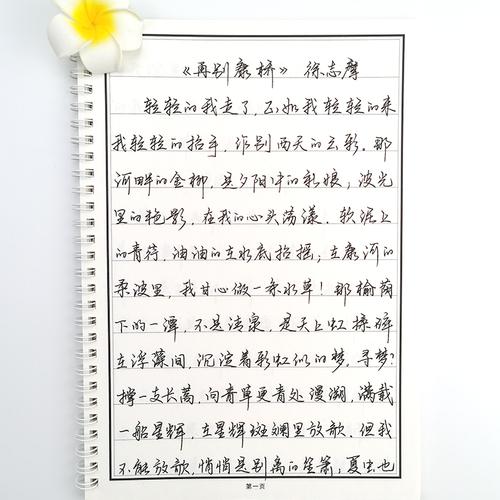 《再别康桥》 徐志摩
轻轻的我走了，正如我轻轻的来
我轻轻的招手，作别西天的云彩。那
河畔的金柳，是夕阳中的新娘；波光
里的艳影，在我的心头荡漾。软泥上
的青荇，油油的在水底招摇；在康河的
柔波里，我甘心做一条水草！那榆荫
下的一潭，不是清泉，是天上虹揉碎
在浮藻间，沉淀着彩虹似的梦。寻梦？
撑一支长蒿，向青草更青处漫溯，满载
一船星辉，在星辉斑斓里放歌。但我
不能放歌，悄悄是别离的笙箫；夏虫也
第一页